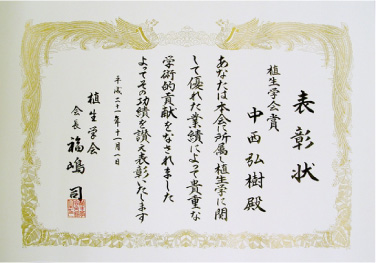 表彰状
植生学会賞
中西弘樹殿
あなたは本会に所属し植生学に関
して優れた業績によって貴重な
学術的貢献をなされました
よってその功績を讃え表彰いたします
平成二十一年十一月一日
植生学会
会長 福嶋司